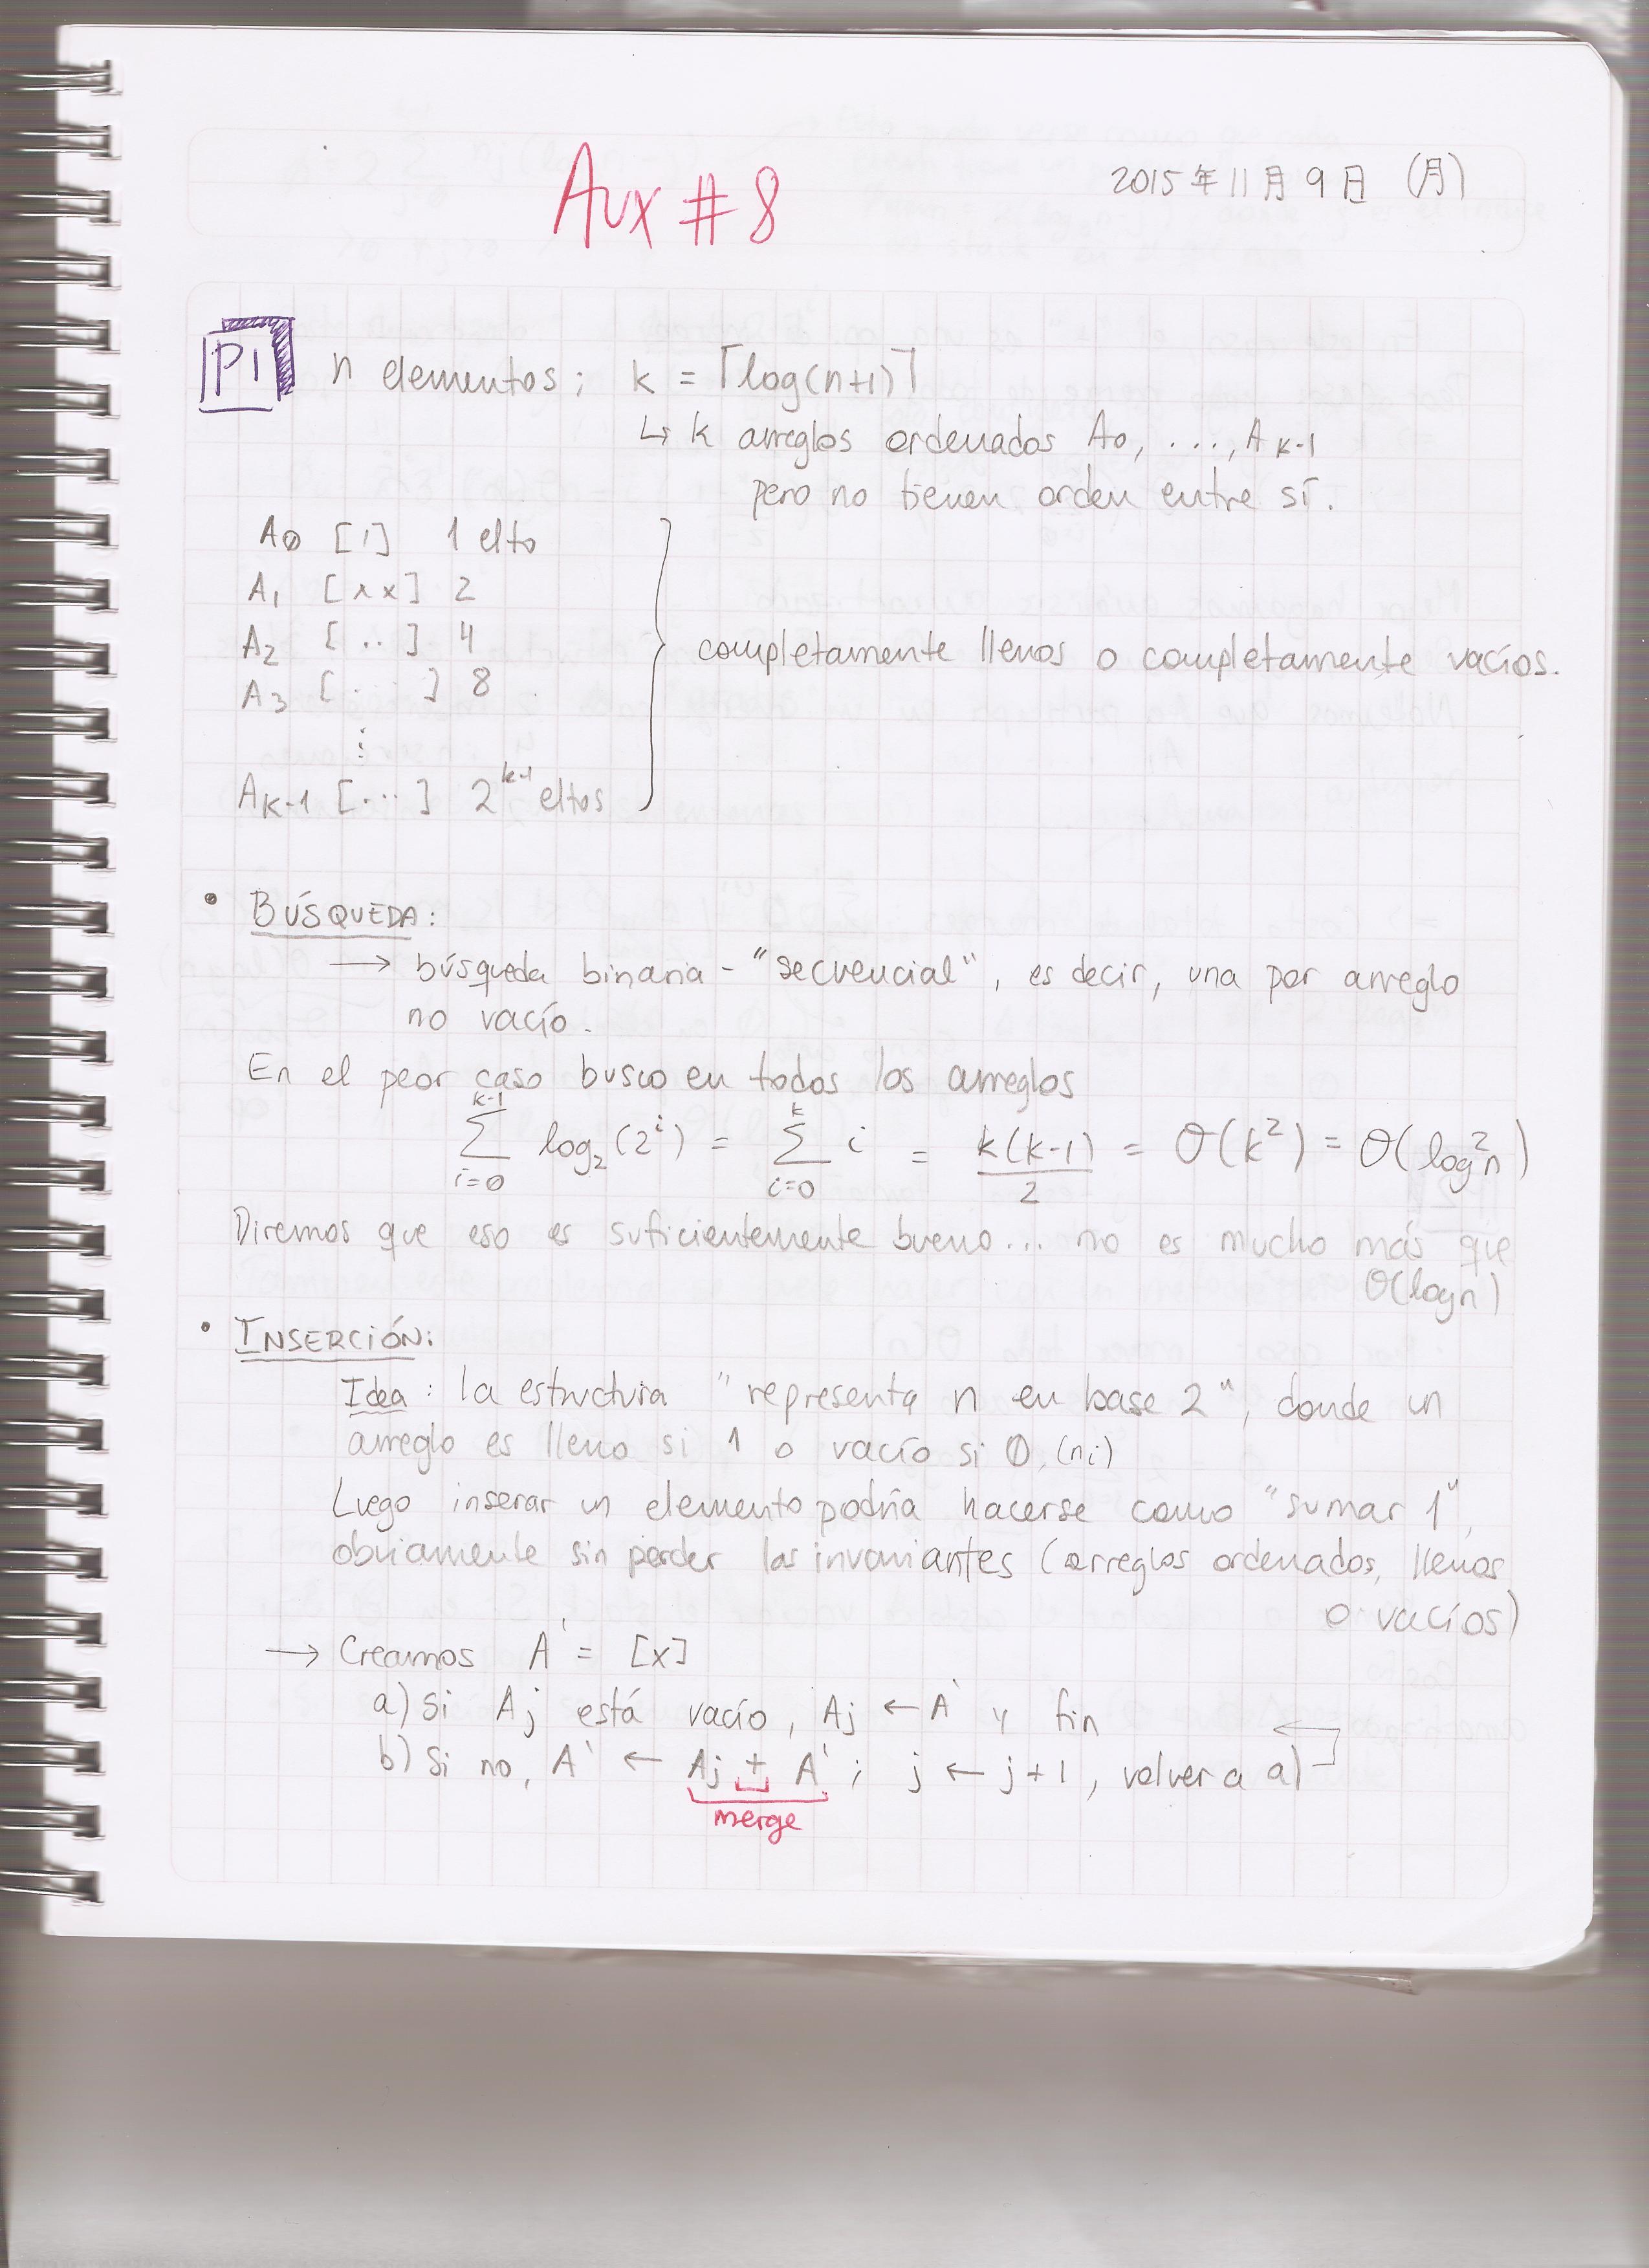 Aux # 8
2015年11月9日 (月)
P1 n elementos; k = ⌈log(n+1)⌉
↳ k arreglos ordenados A0, ..., Ak-1
pero no tienen orden entre sí.
A0 [1] 1 elto
A1 [xx] 2
A2 [..] 4
A3 [. .] 8
⋮
AK-1 [...] 2^k-1 eltos
completamente llenos o completamente vacíos.
• BÚSQUEDA:
→ búsqueda binaria - "secuencial", es decir, una por arreglo
no vacío.
En el peor caso busco en todos los arreglos
∑_{i=0}^{k-1} log₂(2^i) = ∑_{i=0}^{k} i = k(k-1)/2 = O(k²) = O(log²n)
Diremos que eso es suficientemente bueno... no es mucho más que
O(logn)
• INSERCIÓN:
Idea: la estructura "representa n en base 2", donde un
arreglo es lleno si 1 o vacío si 0. (ni)
Luego inserar un elemento podría hacerse como "sumar 1",
obviamente sin perder las invariantes (arreglos ordenados, llenos
o vacíos)
→ Creamos A' = [x]
a) Si Aj está vacío, Aj ← A' y fin
b) Si no, A' ← Aj + A' ; j ← j+1, volver a a)
merge